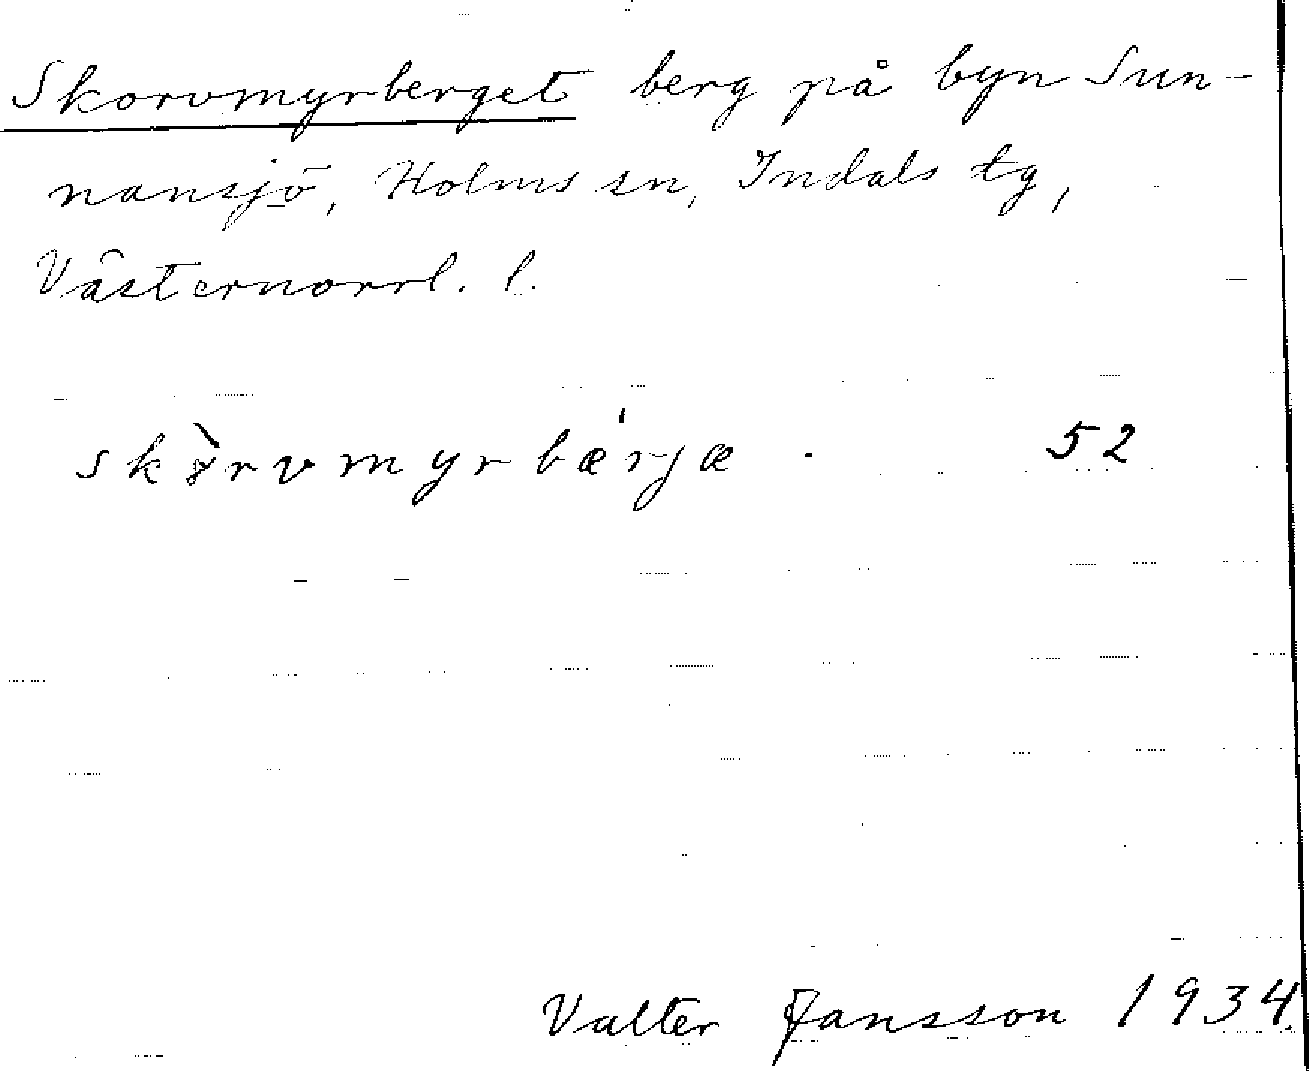 Skorvmyrberget berg på byn Sun-
nansjö, Holms sn, Indals tg,
Västernorrl. l.
skòrvmyrbærjæ . 52
Valter Jansson 1934.